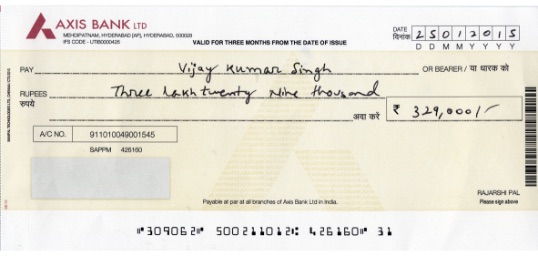 AXIS BANK LTD
MEHDIPATNAM, HYDERABAD [AP], HYDERABAD, 500028
IFS CODE - UTIB0000426
VALID FOR THREE MONTHS FROM THE DATE OF ISSUE
DATE दिनांक 25012015
D D M M Y Y Y Y
PAY Vijay Kumar Singh OR BEARER / या धारक को
RUPEES रुपये Three lakh twenty Nine thousand
अदा करें ₹ 329,000/-
A/C NO. 911010049001545
SAPPM 426160
Payable at par at all branches of Axis Bank Ltd in India.
RAJARSHI PAL
Please sign above
⑈309062⑈ 500211012⑆ 426160⑈ 31